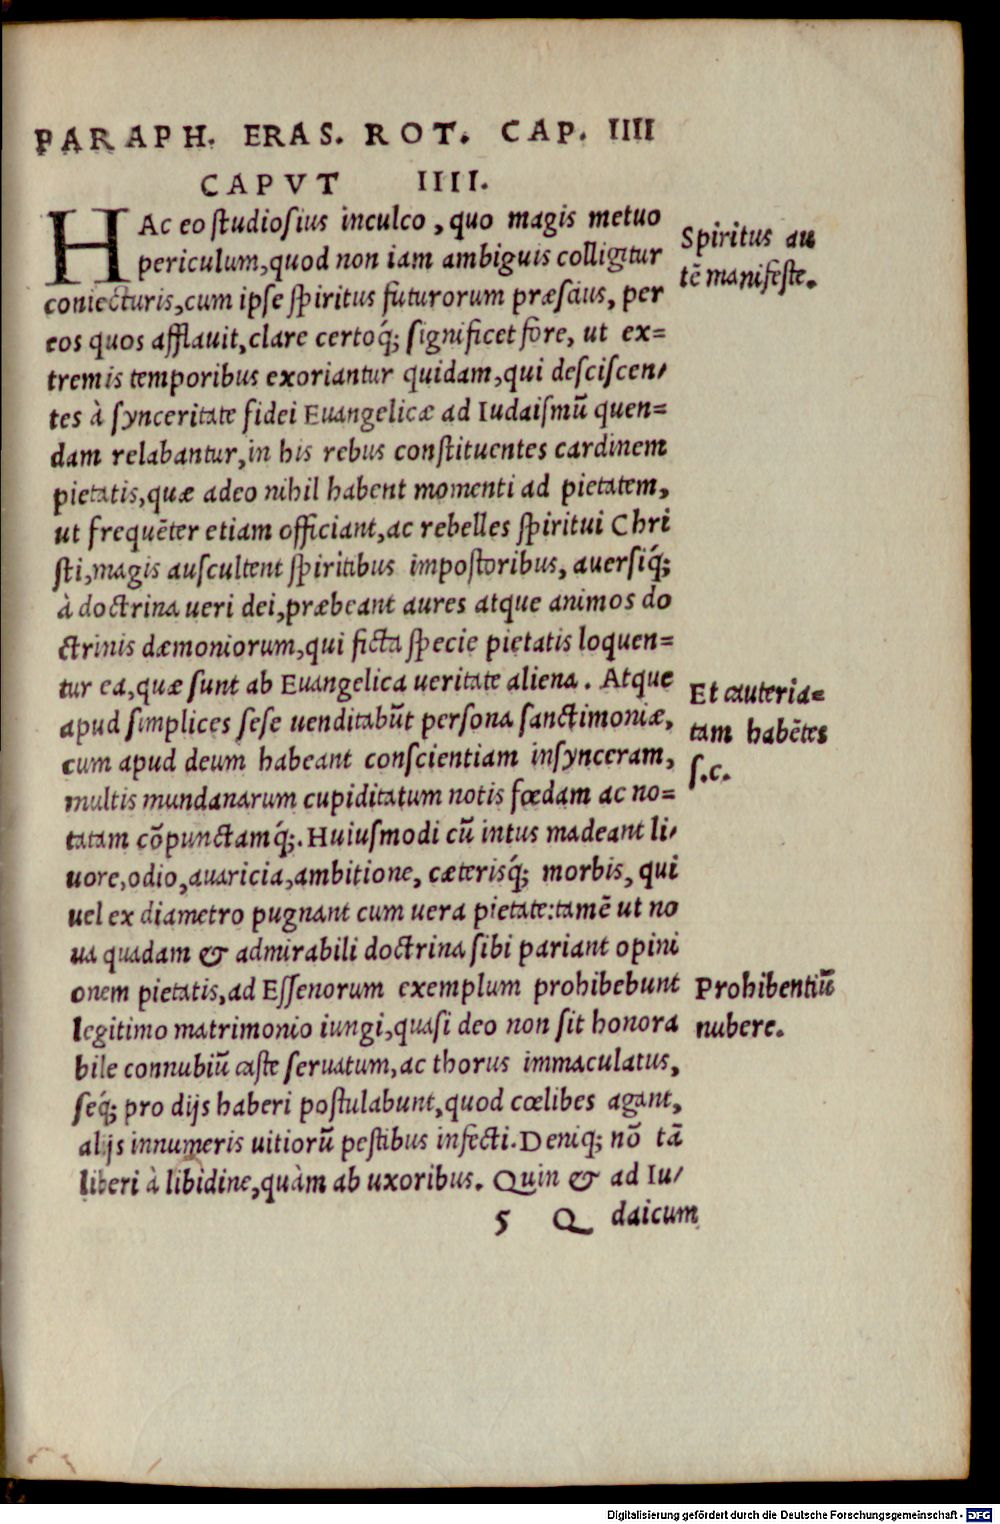 PARAPH. ERAS. ROT. CAP. IIII
CAPVT IIII.
HAc eo ſtudioſius inculco, quo magis metuo
periculum, quod non iam ambiguis colligitur
coniecturis, cum ipſe ſpiritus futurorum præſcius, per
eos quos afflauit, clare certoq́; ſignificet fore, ut ex=
tremis temporibus exoriantur quidam, qui deſciſcen/
tes à ſynceritate fidei Euangelicæ ad Iudaiſmū quen=
dam relabantur, in his rebus conſtituentes cardinem
pietatis, quæ adeo nihil habent momenti ad pietatem,
ut frequēter etiam officiant, ac rebelles ſpiritui Chri
ſti, magis auſcultent ſpiritibus impoſtoribus, auerſiq́;
à doctrina ueri dei, præbeant aures atque animos do
ctrinis dæmoniorum, qui ficta ſpecie pietatis loquen=
tur ea, quæ ſunt ab Euangelica ueritate aliena. Atque
apud ſimplices ſeſe uenditabūt perſona ſanctimoniæ,
cum apud deum habeant conſcientiam inſynceram,
multis mundanarum cupiditatum notis fœdam ac no=
tatam cōpunctamq́;. Huiuſmodi cū intus madeant li/
uore, odio, auaricia, ambitione, cæterisq́; morbis, qui
uel ex diametro pugnant cum uera pietate: tamē ut no
ua quadam & admirabili doctrina ſibi pariant opini
onem pietatis, ad Eſſenorum exemplum prohibebunt
legitimo matrimonio iungi, quaſi deo non ſit honora
bile connubiū caſte ſeruatum, ac thorus immaculatus,
ſeq́; pro dijs haberi poſtulabunt, quod cœlibes agant,
alijs innumeris uitiorū peſtibus infecti. Deniq; nō tā
liberi à libidine, quàm ab uxoribus. Quin & ad Iu/
5 Q daicum
Spiritus au
tē manifeſte.
Et cauteria=
tam habētes
ſ.c.
Prohibentiū
nubere.
Digitalisierung gefördert durch die Deutsche Forschungsgemeinschaft - DFG